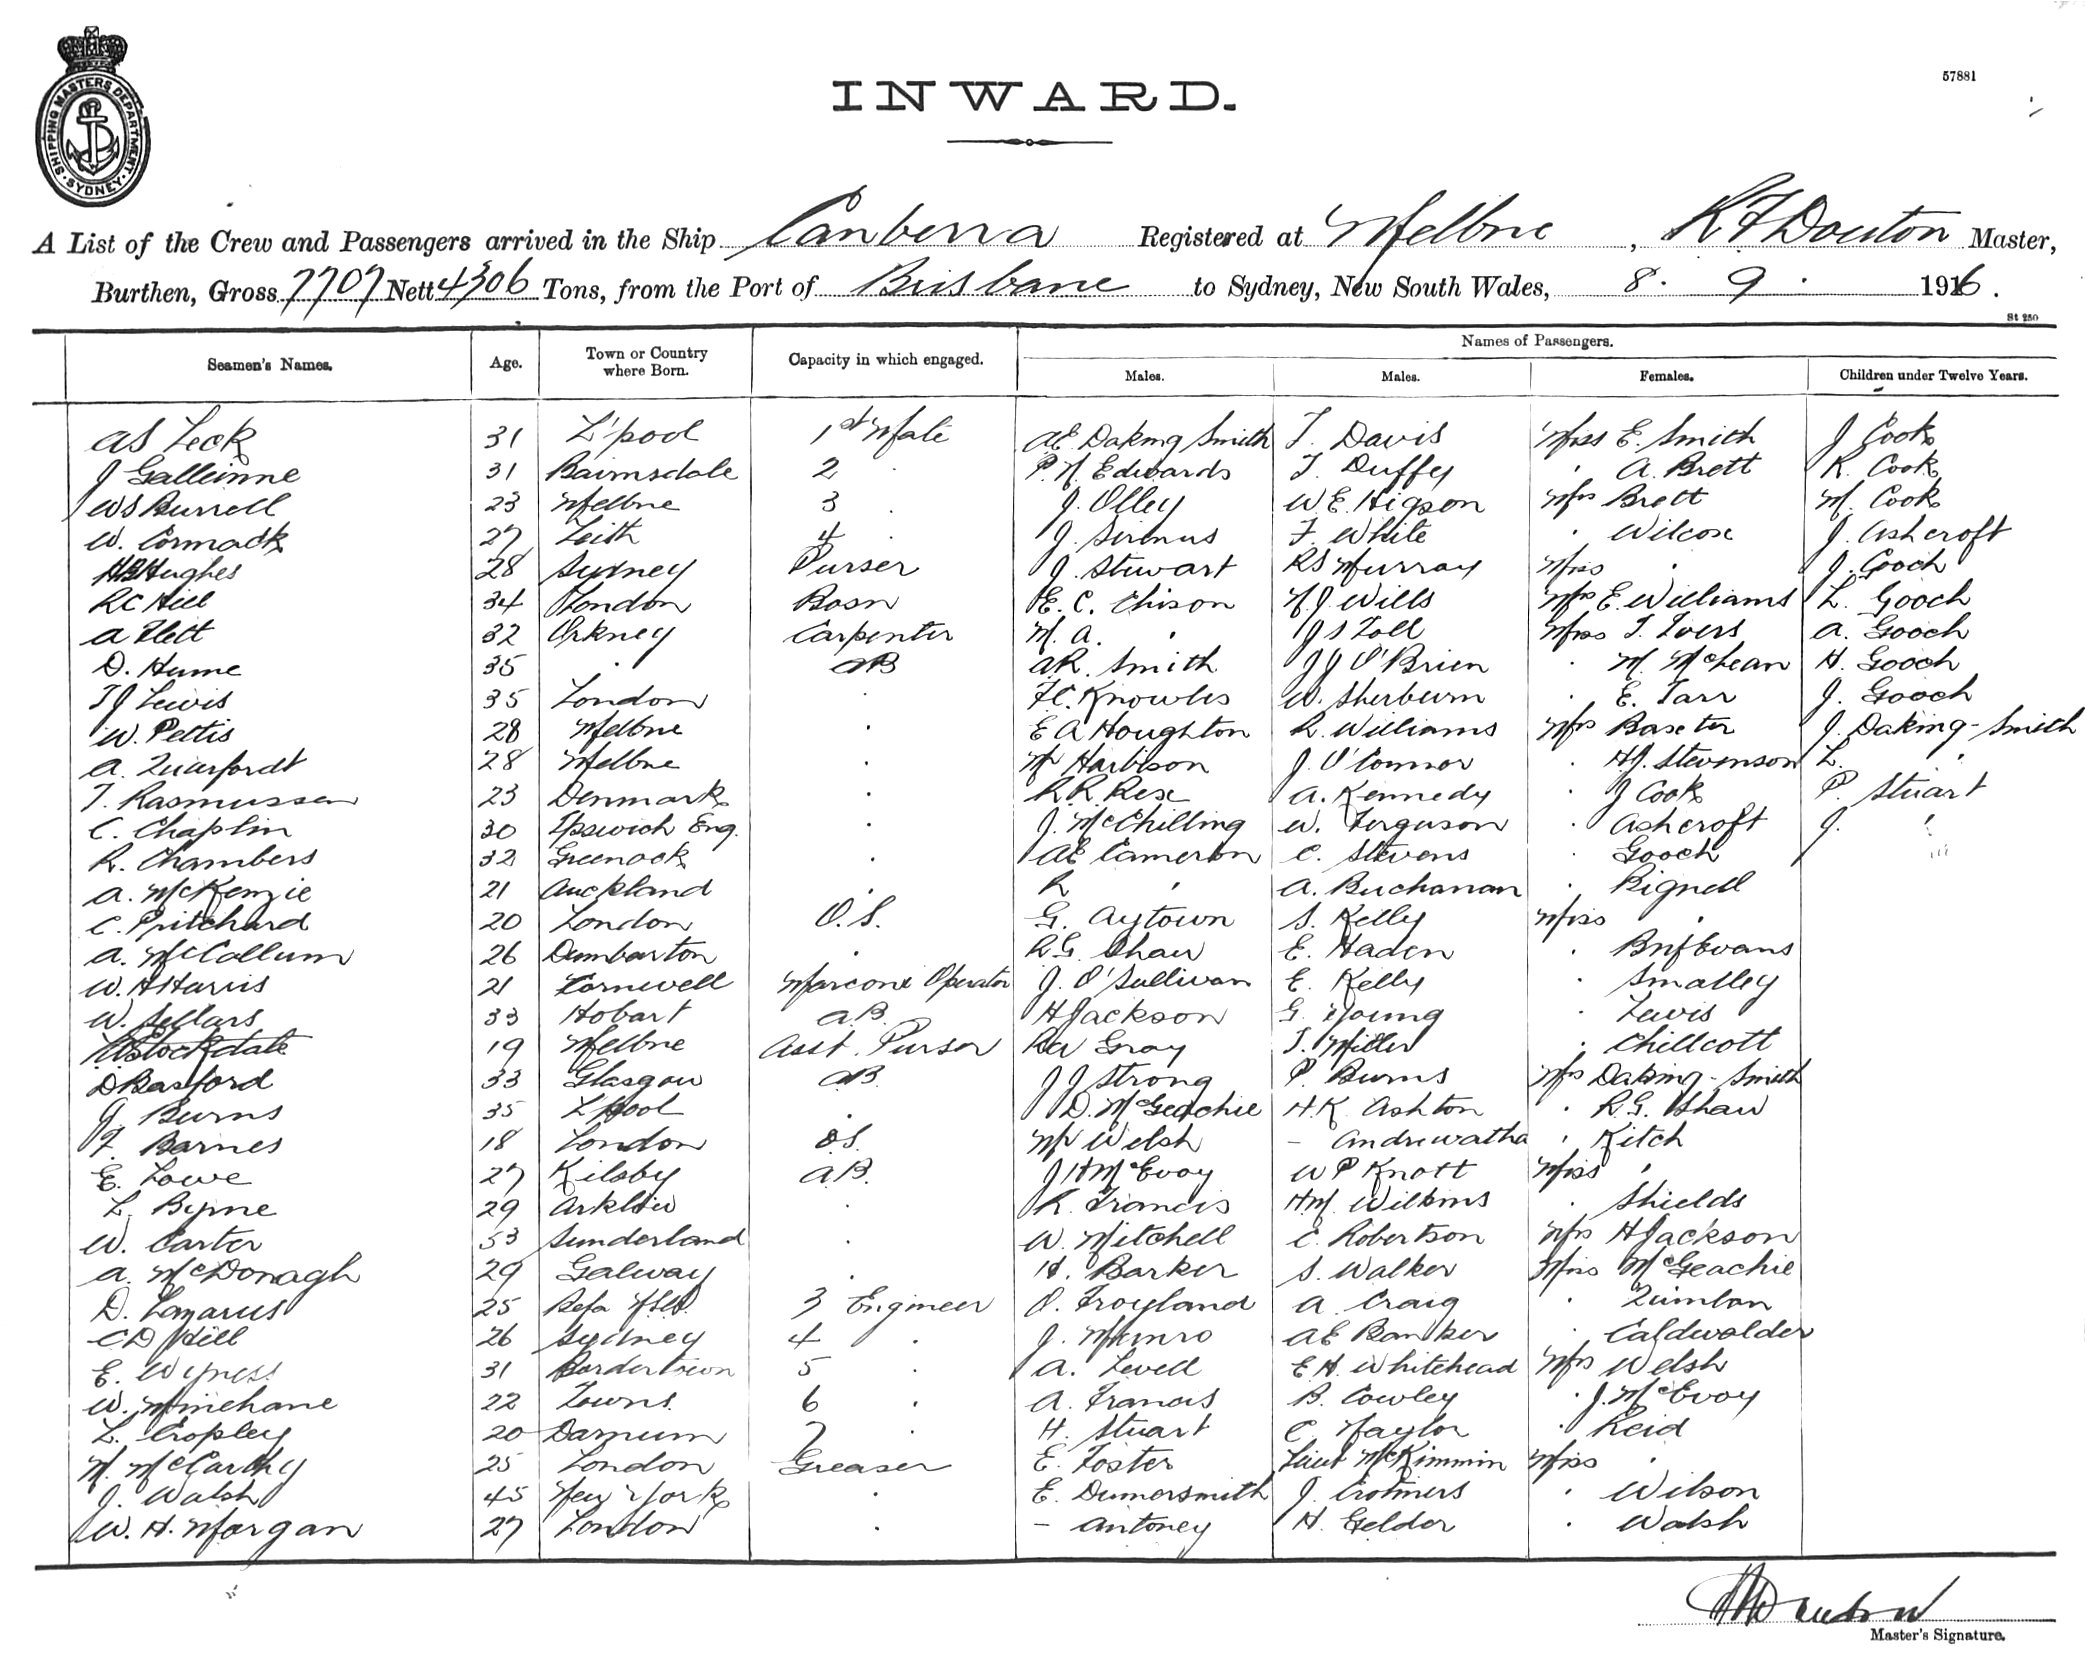 57881
SHIPPING MASTERS DEPARTMENT SYDNEY
INWARD.
A List of the Crew and Passengers arrived in the Ship Canberra Registered at Melbne, R F Douton Master,
Burthen, Gross 7707 Nett 4306 Tons, from the Port of Brisbane to Sydney, New South Wales, 8. 9. 1916.
St 250
Names of Passengers.
Seamen's Names. Age. Town or Country where Born. Capacity in which engaged. Males. Males. Females. Children under Twelve Years.
AS Leck 31 L'pool 1st Mate AE Daking Smith T. Davis Miss E. Smith J Cook
J Gallienne 31 Bairnsdale 2 . P. N. Edwards T. Duffy . A. Brett R. Cook
WS Burrell 23 Melbne 3 . J. Olley W. E. Higson Mrs Brett M. Cook
W. Cormack 27 Leith 4 . J. F. White . Wilcox J. Ashcroft
Hughes 28 Sydney Purser J. Stewart RS Murray Miss " J. Gooch
RC Hill 34 London Bosn E. C. Chison N. J. Wills Mrs E. Williams L. Gooch
A Flett 32 Orkney Carpenter M. A. " J S Toll Miss T. Ivers A. Gooch
D. Hume 35 . AB AR. Smith J J O'Brien . M. McLean H. Gooch
T J Lewis 35 London . F. C. Knowles W. Sherburn . E. Tarr J. Gooch
W. Pettis 28 Melbne . E A Houghton R. Williams Mrs Baxter J. Daking-Smith
A. Quarfordt 28 Melbne . Mr Harbison J. O'Connor . H. J. Stevenson L. "
T. Rasmussen 23 Denmark . R. R. Rex A. Kennedy . J Cook P. Stuart
C. Chaplin 30 Ipswich Eng. . J. McChilling W. Ferguson . Ashcroft J. "
R. Chambers 32 Greenock . AE Cameron C. Stevens . Gooch
A. McKenzie 21 Auckland . R " A. Buchanan . Bignell
C. Pritchard 20 London O.S. G. Aytown S. Kelly Miss "
A. McCallum 26 Dumbarton . R. G. Shaw E. Haden . Evans
W. H Harris 21 Cornwell Marconi Operator J. O'Sullivan E. Kelly . Smalley
W. Sellars 33 Hobart A.B. H Jackson G. Young . Lewis
Stockdale 19 Melbne Asst. Purser Gray T. Miller . Chillcott
D Basford 33 Glasgow AB. J J Strong P. Burns Mrs Daking-Smith
J. Burns 35 L'pool . D. McGeachie H. K. Ashton . R. G. Shaw
F. Barnes 18 London O.S. Mr Welsh - Andrewatha . Kitch
E. Lowe 27 Kilsby A.B. J H McEvoy W P Knott Miss "
L. Byrne 29 Arklow . R. Francis H. M. Wilkins . Shields
W. Carter 53 Sunderland . W. Mitchell C. Robertson Mrs H Jackson
A. McDonagh 29 Galway . H. Barker S. Walker Miss McGeachie
D. Lazarus 25 3 Engineer O. Froyland A. Craig . Quinlan
C D Hill 26 Sydney 4 . J. Munro AE Banker . Caldwalder
E. Wyness 31 Bordertown 5 . A. Levell E. H. Whitehead Mrs Welsh
W. Minehane 22 Towns. 6 . A. Francis B. Cowley . J. McEvoy
L. Cropley 20 Darnum 7 . H. Stuart C Naylor . Reid
M. McCarthy 25 London Greaser E. Foster Lieut McKimmin Miss "
J. Walsh 45 New York . E. Dumersmith J. . Wilson
W. H. Morgan 27 London . - Antoney H. Gelder . Walsh
Master's Signature.